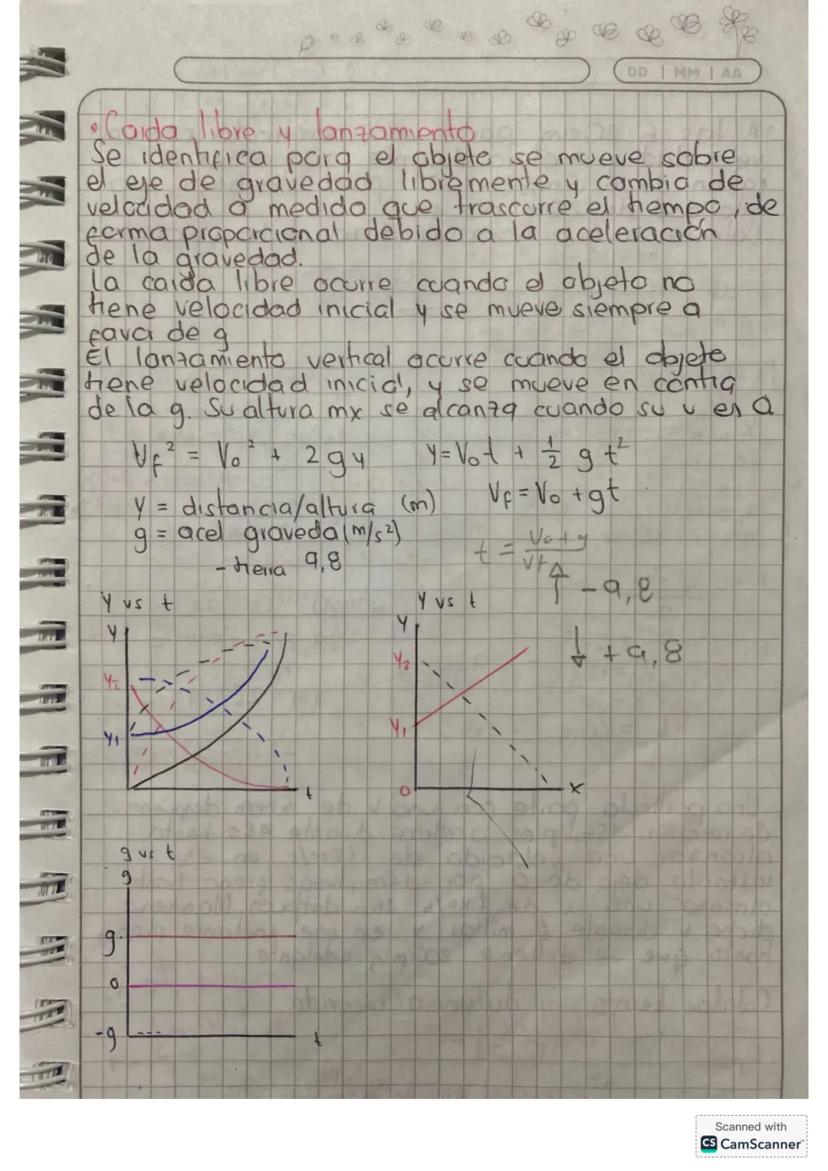 DD | MM | AA
• Caida libre y lanzamiento
Se identifica porq el objete se mueve sobre
el eje de gravedad libremente y cambia de
velocidad a medida que trascurre el tiempo, de
forma proporcional debido a la aceleración
de la gravedad.
la caida libre ocurre cuando el objeto no
tiene velocidad inicial y se mueve siempre a
favor de g
El lanzamiento vertical ocurre cuando el objete
tiene velocidad inicial, y se mueve en contra
de la g. Su altura mx se alcanza cuando su v es 0
Vf² = Vo² + 2gy    y = Vot + 1/2 g t²
y = distancia/altura (m)    Vf = Vo + gt
g = acel graveda (m/s²)
- tierra 9,8
t =
↑ - 9,8
↓ + 9,8
Y vs t    Y vs t
Y    Y
Y2    Y2
Y1    Y1
t    0    x
g vs t
g
g
0
-g    t
Scanned with
CS CamScanner